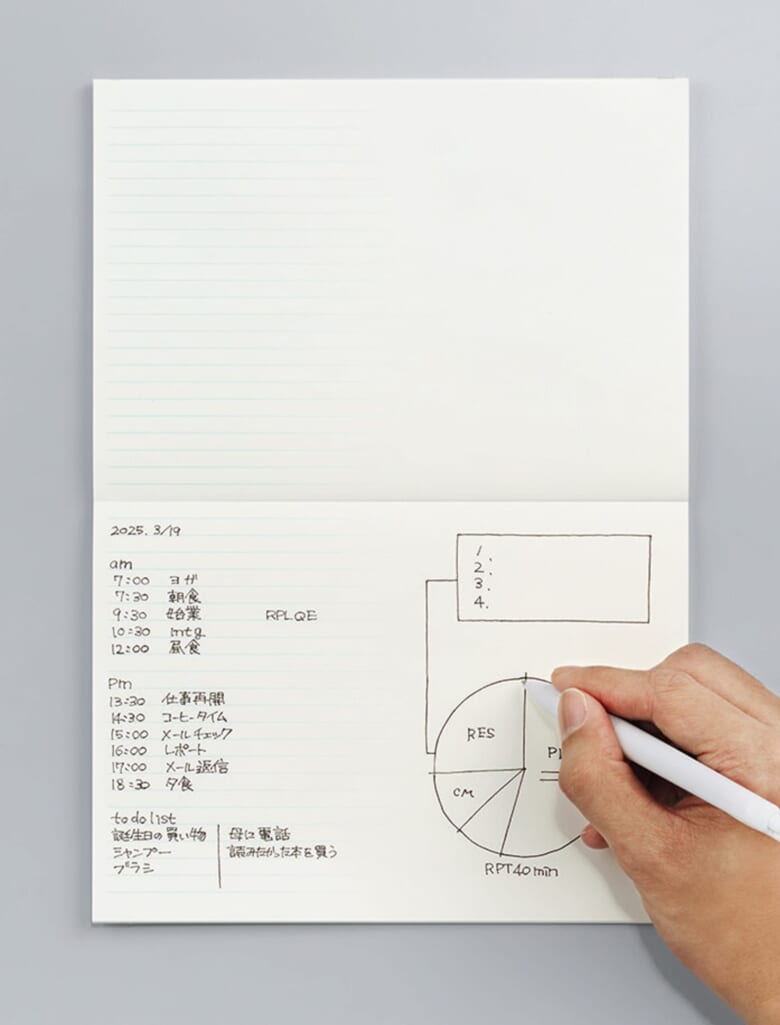 2025. 3/19
am
7:00 ヨガ
7:30 朝食
9:30 始業 RPLQE
10:30 mtg.
12:00 昼食
Pm
13:30 仕事再開
14:30 コーヒータイム
15:00 メールチェック
16:00 レポート
17:00 メール返信
18:30 夕食
to do list
誕生日の買い物
シャンプー
ブラシ
母に電話
読みたかった本を買う
1.
2.
3.
4.
RES
CM
RPT40min